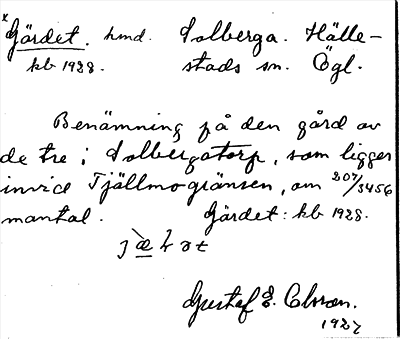 x Gärdet. hmd. Solberga. Hälle-
kb 1928. stads sn. Ögl.
Benämning på den gård av
de tre i Solbergatorp, som ligger
invid Tjällmogränsen, om 207/3456
mantal. Gärdet: kb 1928.
Gustaf E. Olsson.
1927